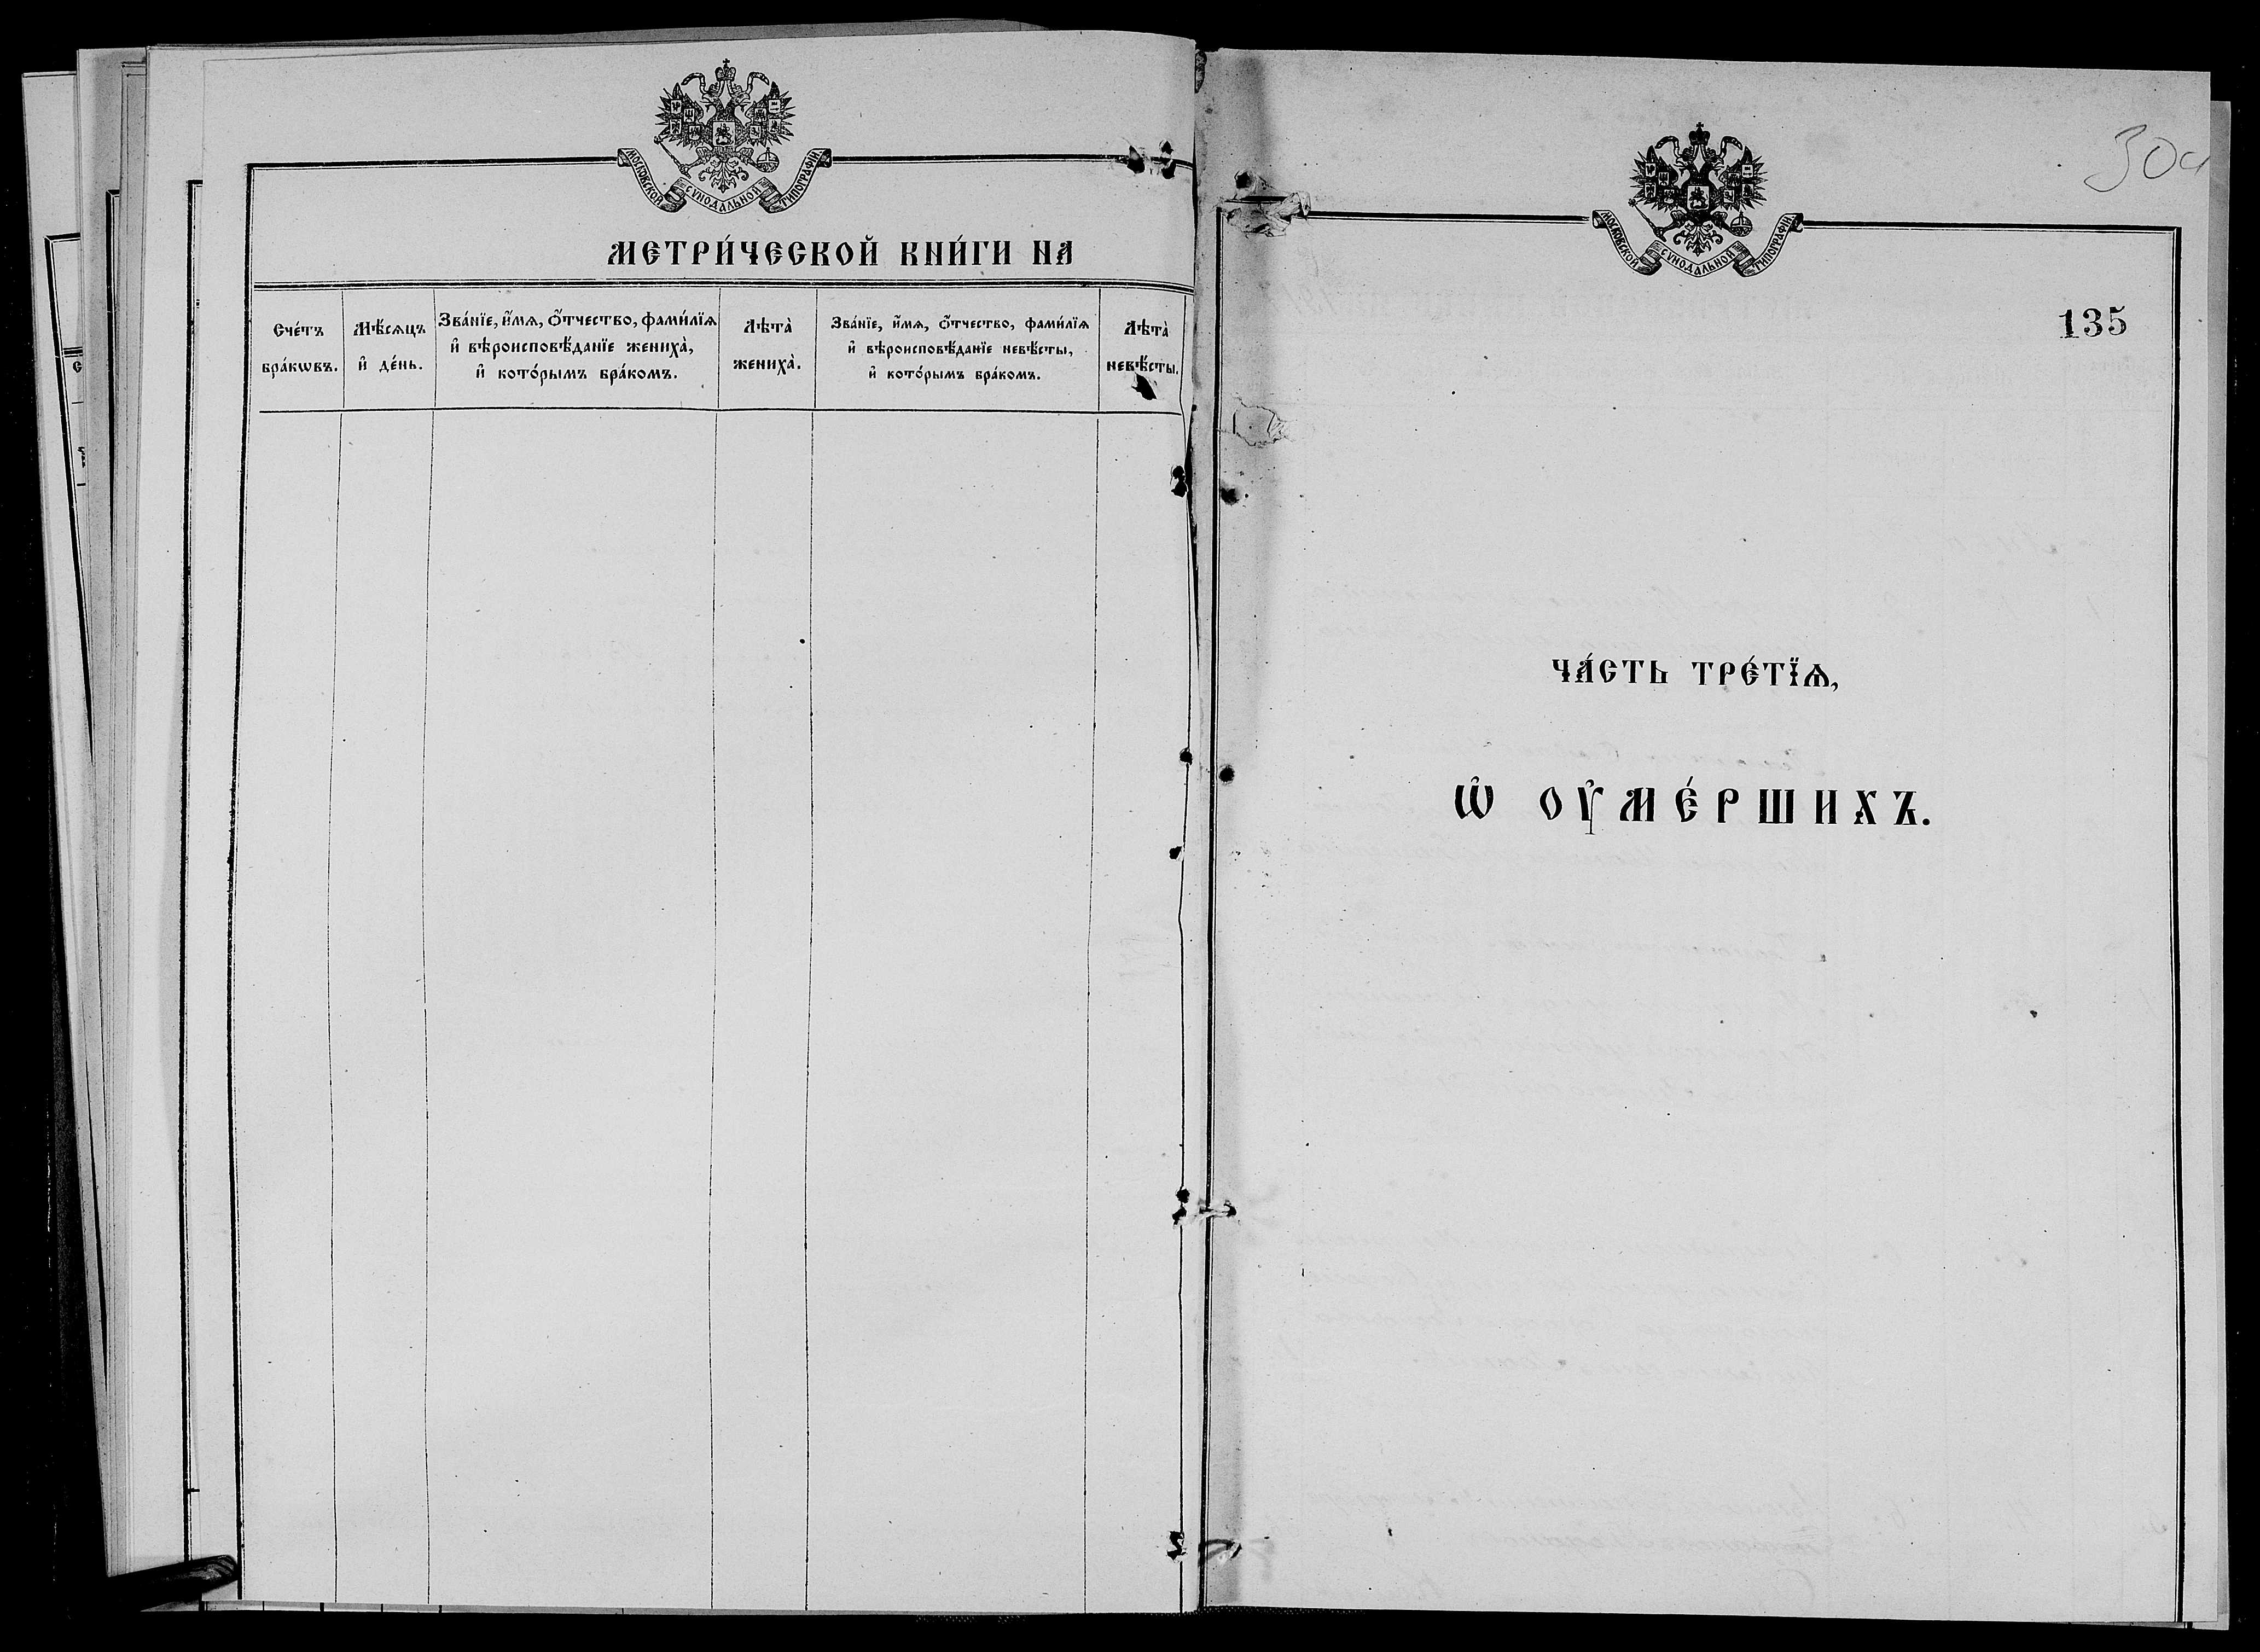 МОСКОВСКОЙ СѴНОДАЛЬНОЙ ТИПОГРАФІИ.
МЕТРИ́ЧЕСКОЙ КНИ́ГИ НА
Сче́тъ бра́кѡвъ.
Мѣ́сяцъ и҆ де́нь.
Зва́нїе, и҆́мѧ, ѻ҆́тчество, фами́лїѧ
и҆ вѣроисповѣ́данїе жениха̀,
и҆ кото́рымъ бра́комъ.
Лѣта̀ жениха̀.
Зва́нїе, и҆́мѧ, ѻ҆́тчество, фами́лїѧ
и҆ вѣроисповѣ́данїе невѣ́сты,
и҆ кото́рымъ бра́комъ.
Лѣта̀ невѣ́сты.
МОСКОВСКОЙ СѴНОДАЛЬНОЙ ТИПОГРАФІИ.
135
ЧА́СТЬ ТРЕ́ТЇѦ,
Ѡ҆ ОУ҆МЕ́РШИХЪ.